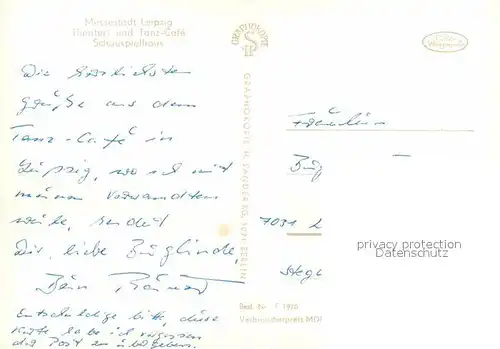 Messestadt Leipzig
Theater- und Tanz-Café
Schauspielhaus
Die herzlichsten
Grüße aus dem
Tanz-Café in
Leipzig, wo ich mit
meinen Verwandten
weile, sendet
Dir, liebe Büglinde,
Dein
Entschuldige bitte, diese
Karte habe ich vergessen
der Post zu übergeben.
GRAPHOKOPIE
GRAPHOKOPIE H. SANDER KG, 1071 BERLIN
Best.-Nr. F 1970
Verbraucherpreis MDN
Fräulein
7031 L
privacy protection
Datenschutz